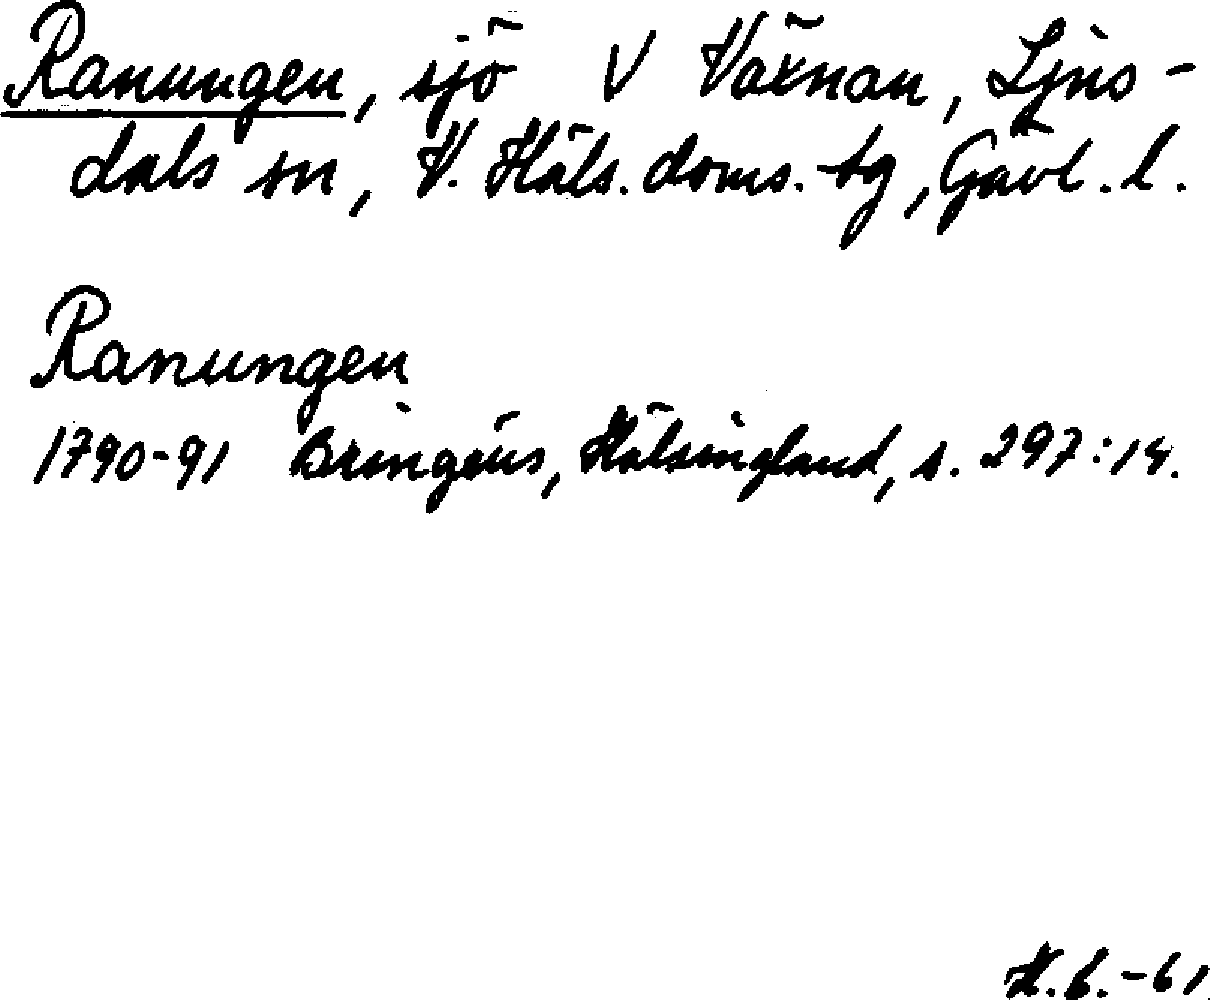 Ranungen, sjö V Voxnan, Ljus-
dals sn, V. Häls. doms.-sg, Gävl. l.
Ranungen
1790-91 Bringéus, Hälsingland, s. 297:14.
H.b.-61